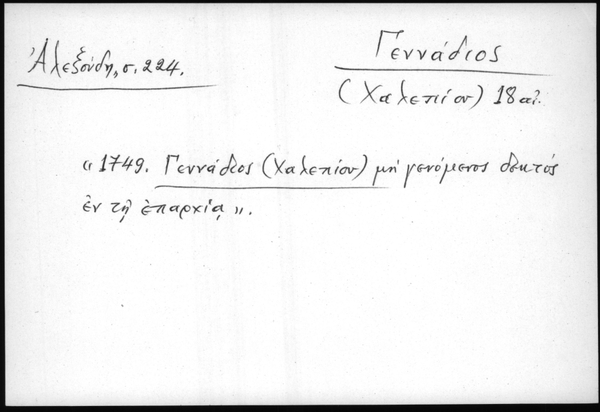 Ἀλεξούδη, σ. 224.
Γεννάδιος
(Χαλεπίου) 18 αἰ.
« 1749. Γεννάδιος (Χαλεπίου) μὴ γενόμενος δεκτὸς
ἐν τῇ ἐπαρχίᾳ ».